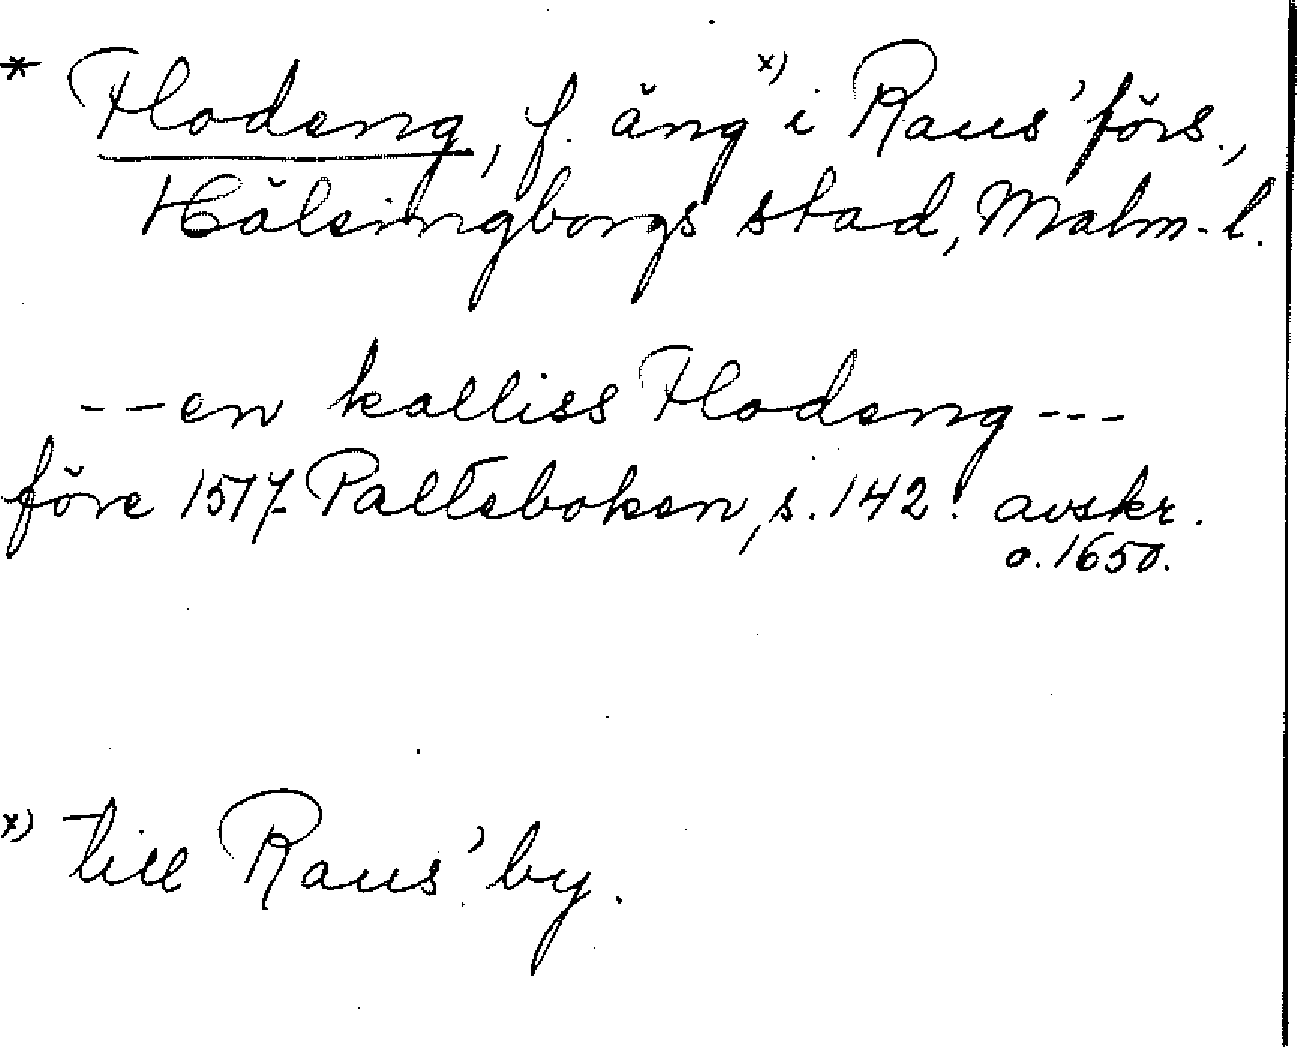 * Flodeng, f. äng x) i Raus' förs.,
Hälsingborgs stad, Malm. l.
-- en kalliss Flodeng ---
före 1517. Palteboken, s. 142. avskr.
o. 1650.
x) till Raus' by.